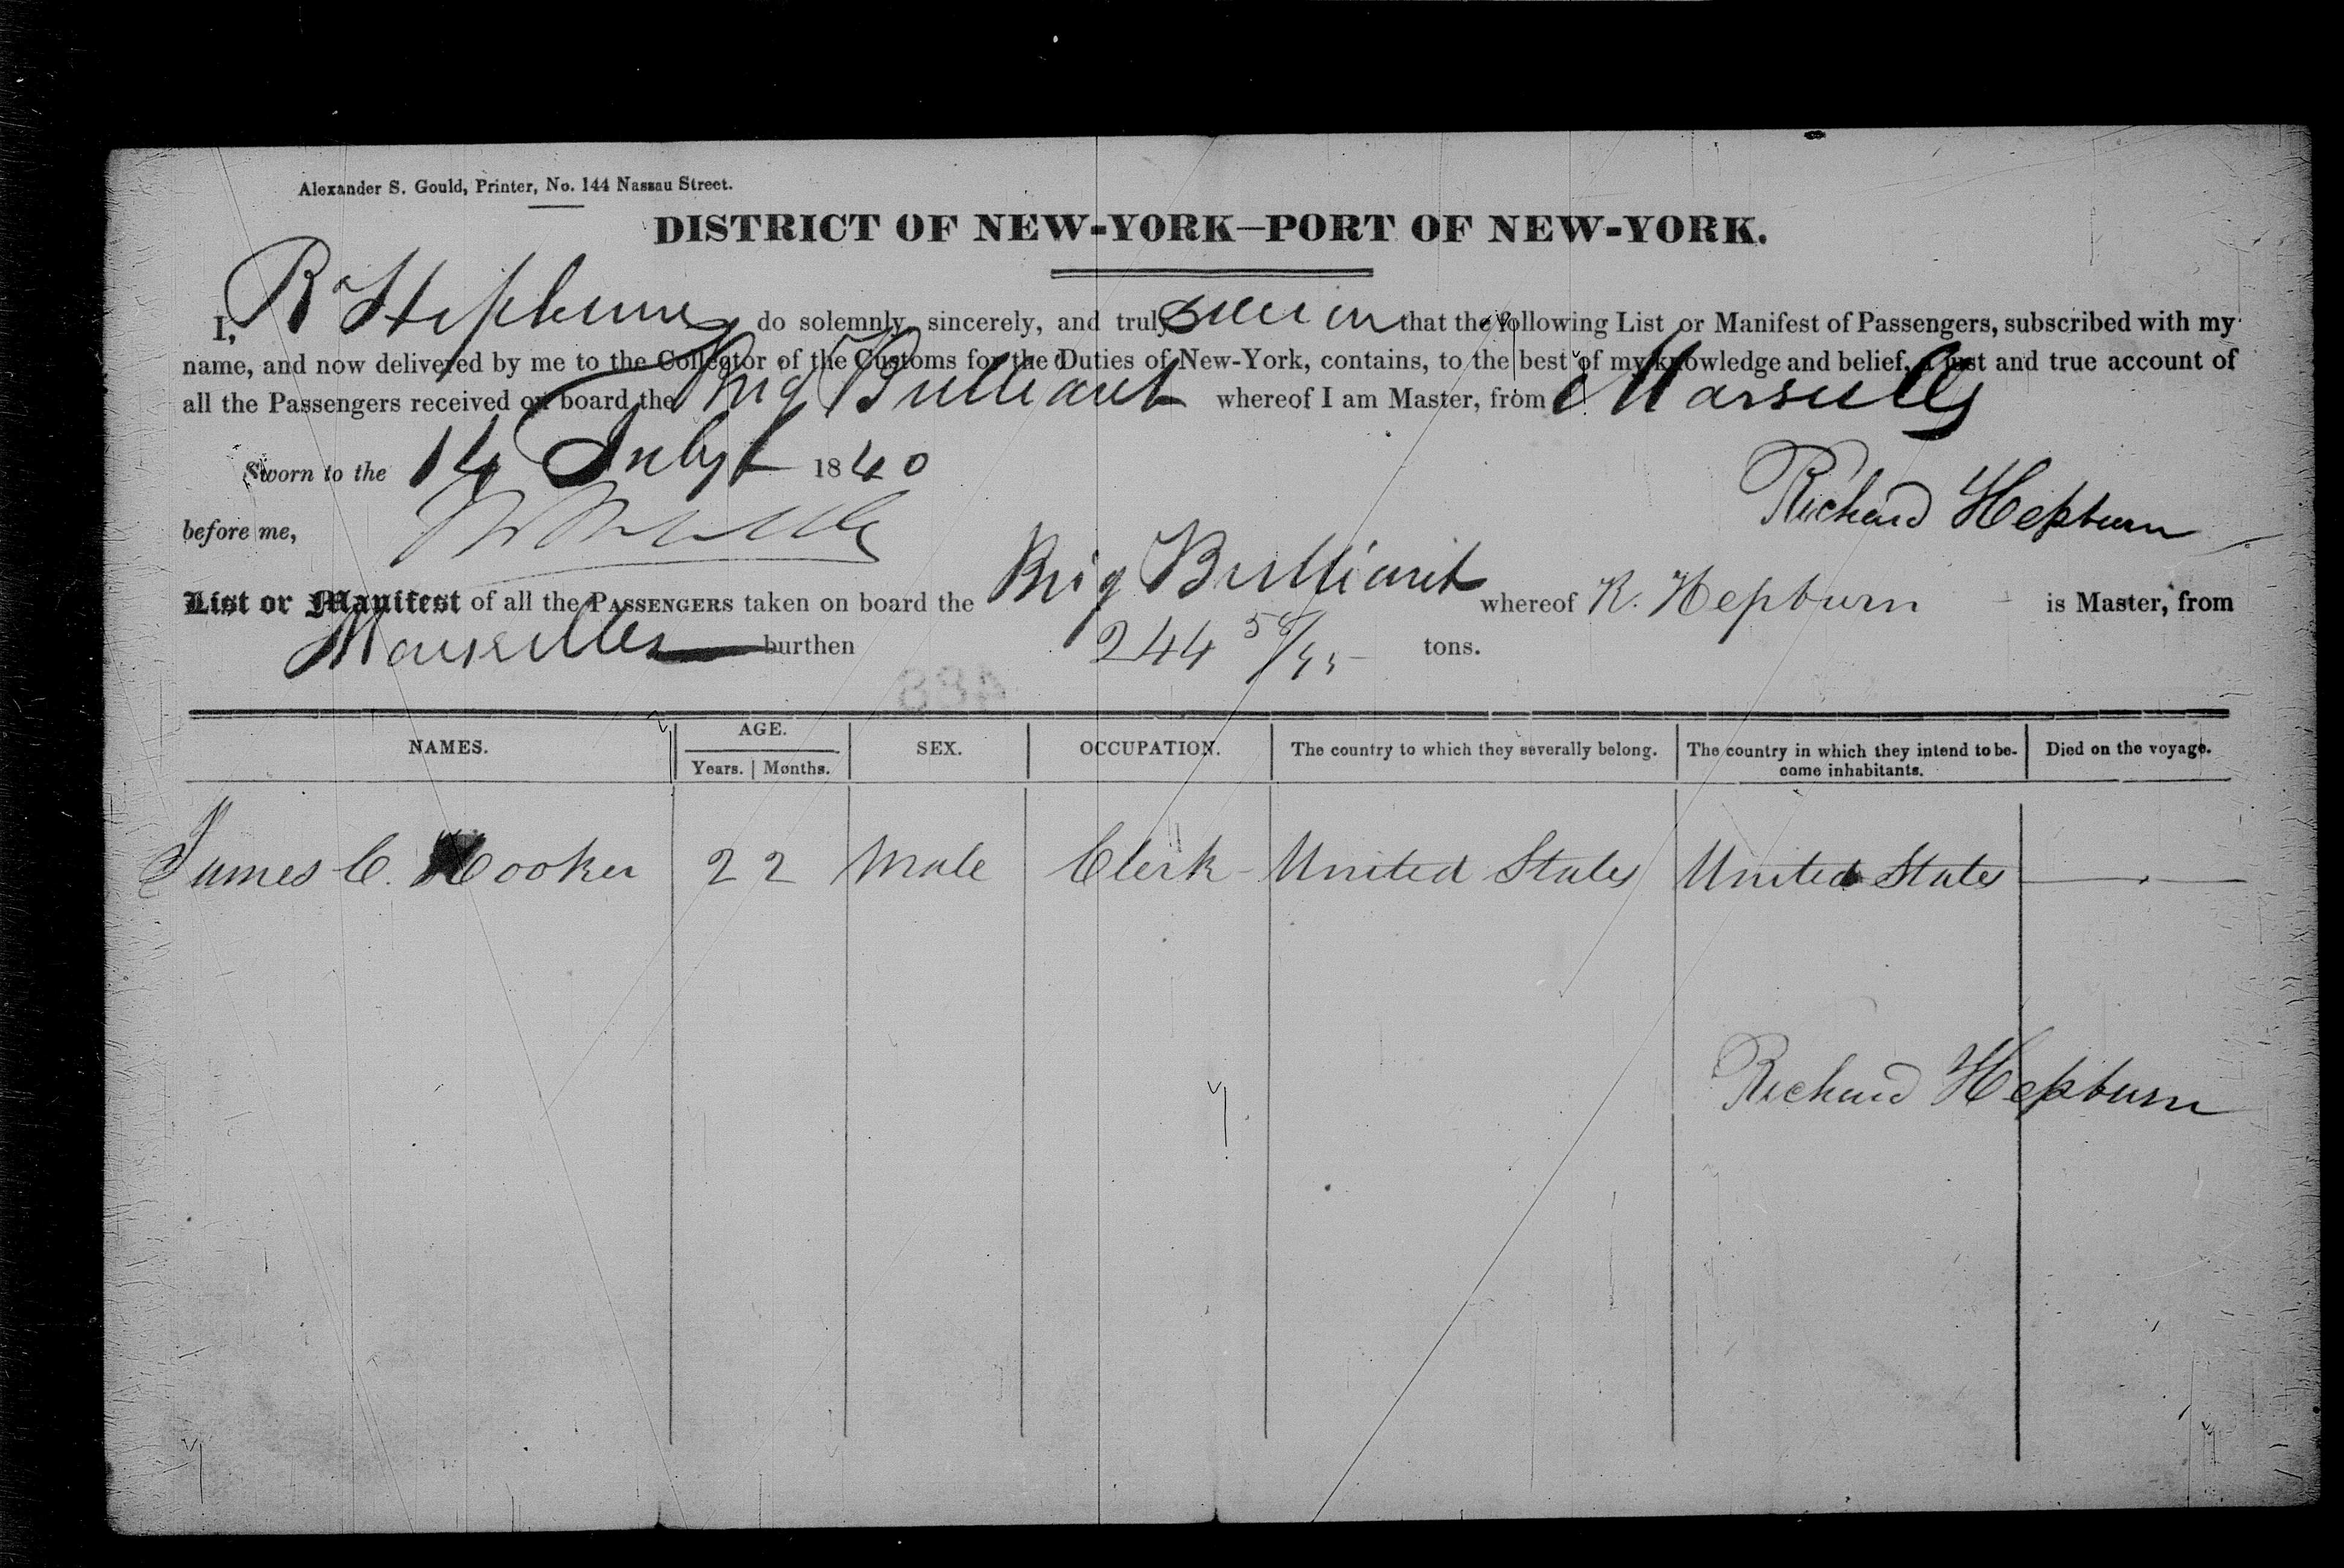 Alexander S. Gould, Printer, No. 144 Nassau Street.
DISTRICT OF NEW-YORK—PORT OF NEW-YORK.
I, R Hepburn do solemnly, sincerely, and truly swear that the following List or Manifest of Passengers, subscribed with my
name, and now delivered by me to the Collector of the Customs for the Duties of New-York, contains, to the best of my knowledge and belief, a just and true account of
all the Passengers received on board the Brig Brilliant whereof I am Master, from Marseilles
Sworn to the 14 July 1840
Richard Hepburn
before me,
List or Manifest of all the PASSENGERS taken on board the Brig Brilliant whereof R. Hepburn is Master, from
Marseilles burthen 244 58/95 tons.
488
NAMES. AGE. SEX. OCCUPATION. The country to which they severally belong. The country in which they intend to be-come inhabitants. Died on the voyage.
Years. Months.
James C. Hooker 22 Male Clerk United States United States
Richard Hepburn